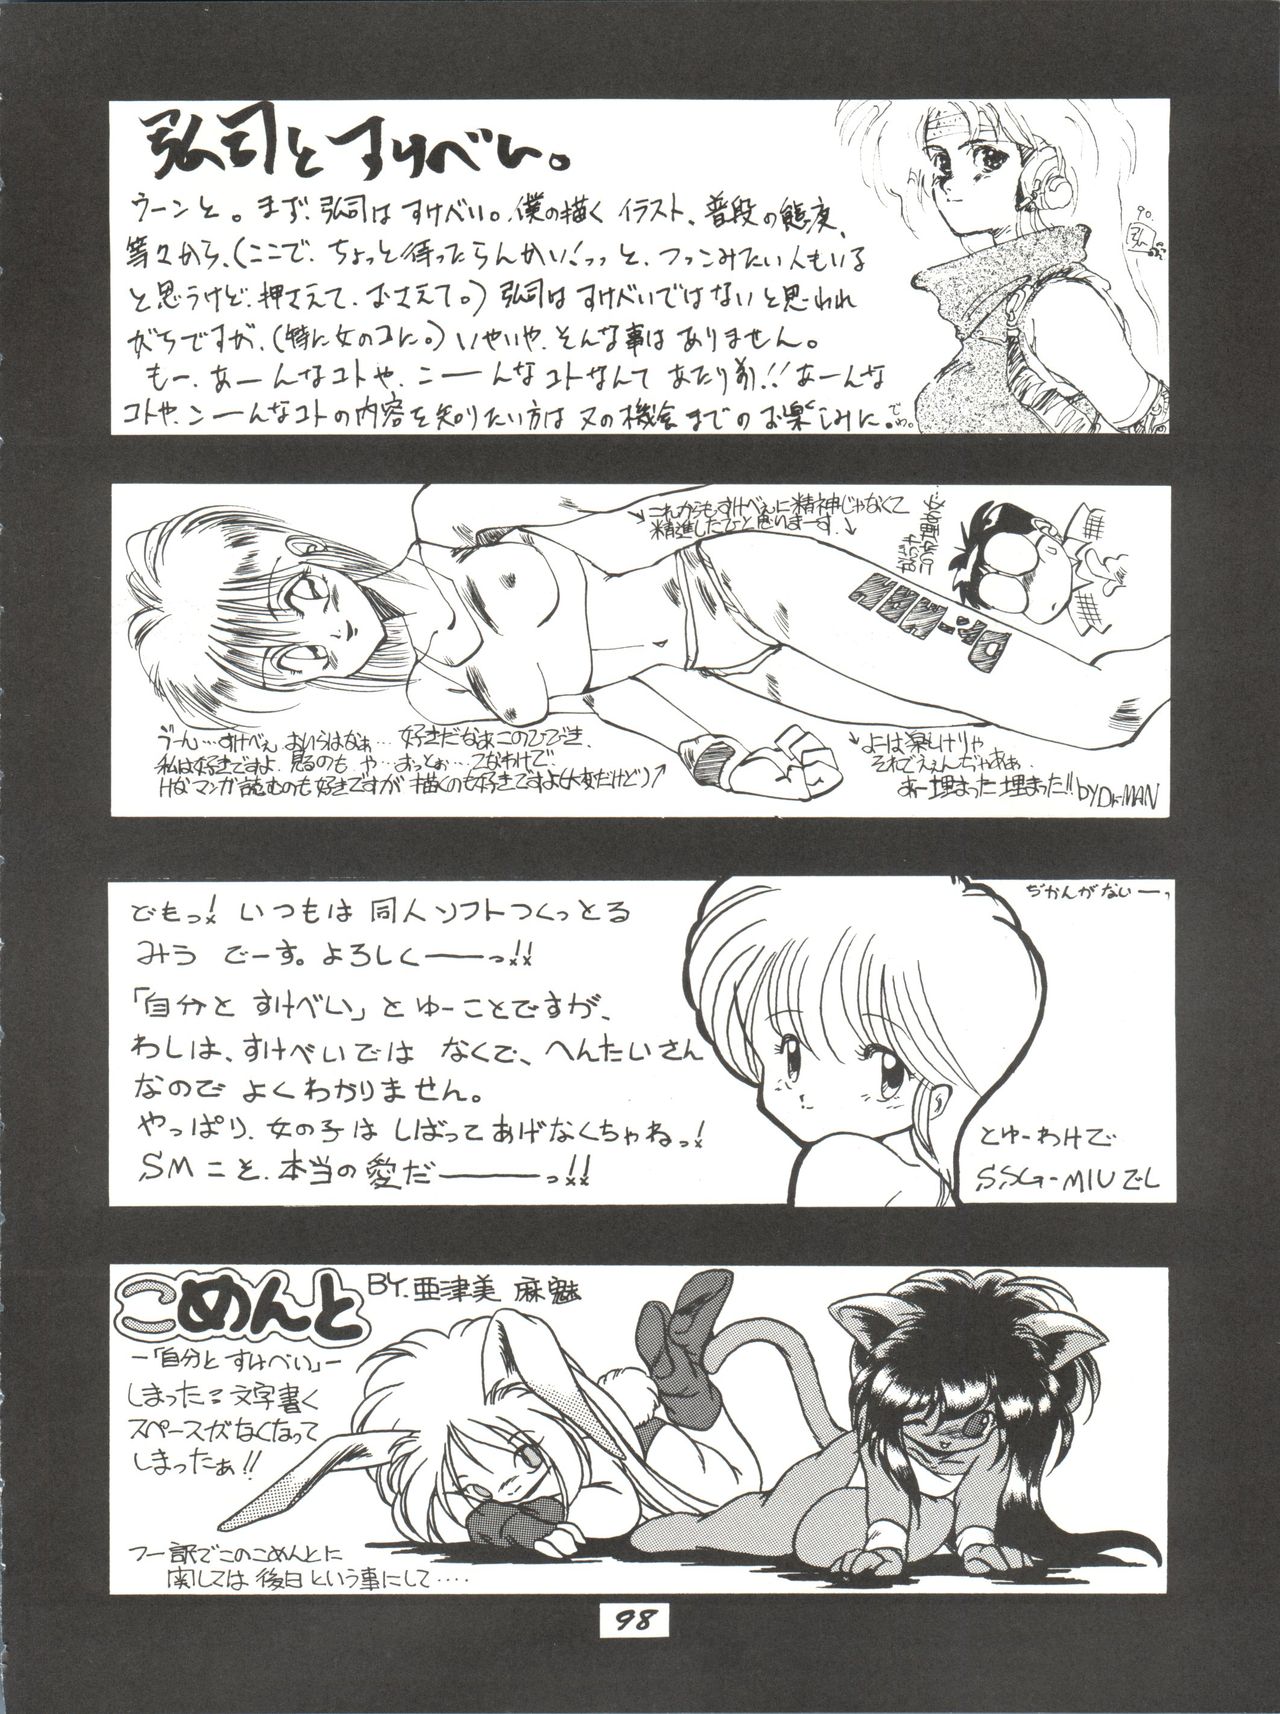 弘司とすけべい。
ウーンと。まず、弘司はすけべい。僕の描くイラスト、普段の態度、
等々から、(ここで、ちょっと待ったらんかい!っっと、つっこみたい人もいる
と思うけど、押さえて、おさえて。)弘司はすけべいではないと思われ
がちですが、(特に女のコに。)いやいや、そんな事はありません。
もー、あーんなコトや、こーんなコトなんてあたり前!!あーんな
コトや、こーんなコトの内容を知りたい方は又の機会までのお楽しみに。では。
90.
弘
これからもすけべぇに精神じゃなくて
精進したいと思いまーす。
うーん…すけべぇ おいらはなぁ… 好きだなぁこのひびき、
私は好きですよ、見るのも や…おっとぉ…てなわけで
Hなマンガ読むのも好きですが描くのも好きですよ(大変だけど)
よーは楽しけりゃ
それでええんぢゃああ、
あー埋まった埋まった!! by Dr-MAN
ぢかんがないーっ
どもっ! いつもは同人ソフトつくっとる
みう でーす。よろしくーーっ!!
「自分とすけべい」とゆーことですが、
わしは、すけべいでは なくて、へんたいさん
なので よくわかりません。
やっぱり、女の子は しばってあげなくちゃねっ!
SMこそ、本当の愛だーーっ!!
とゆーわけで
SSG-MIUでし
こめんと BY.亜津美 麻魅
ー「自分とすけべい」ー
しまった= 文字書く
スペースがなくなって
しまったぁ!!
フー訳でこのこめんとに
関しては後日という事にして‥‥
98